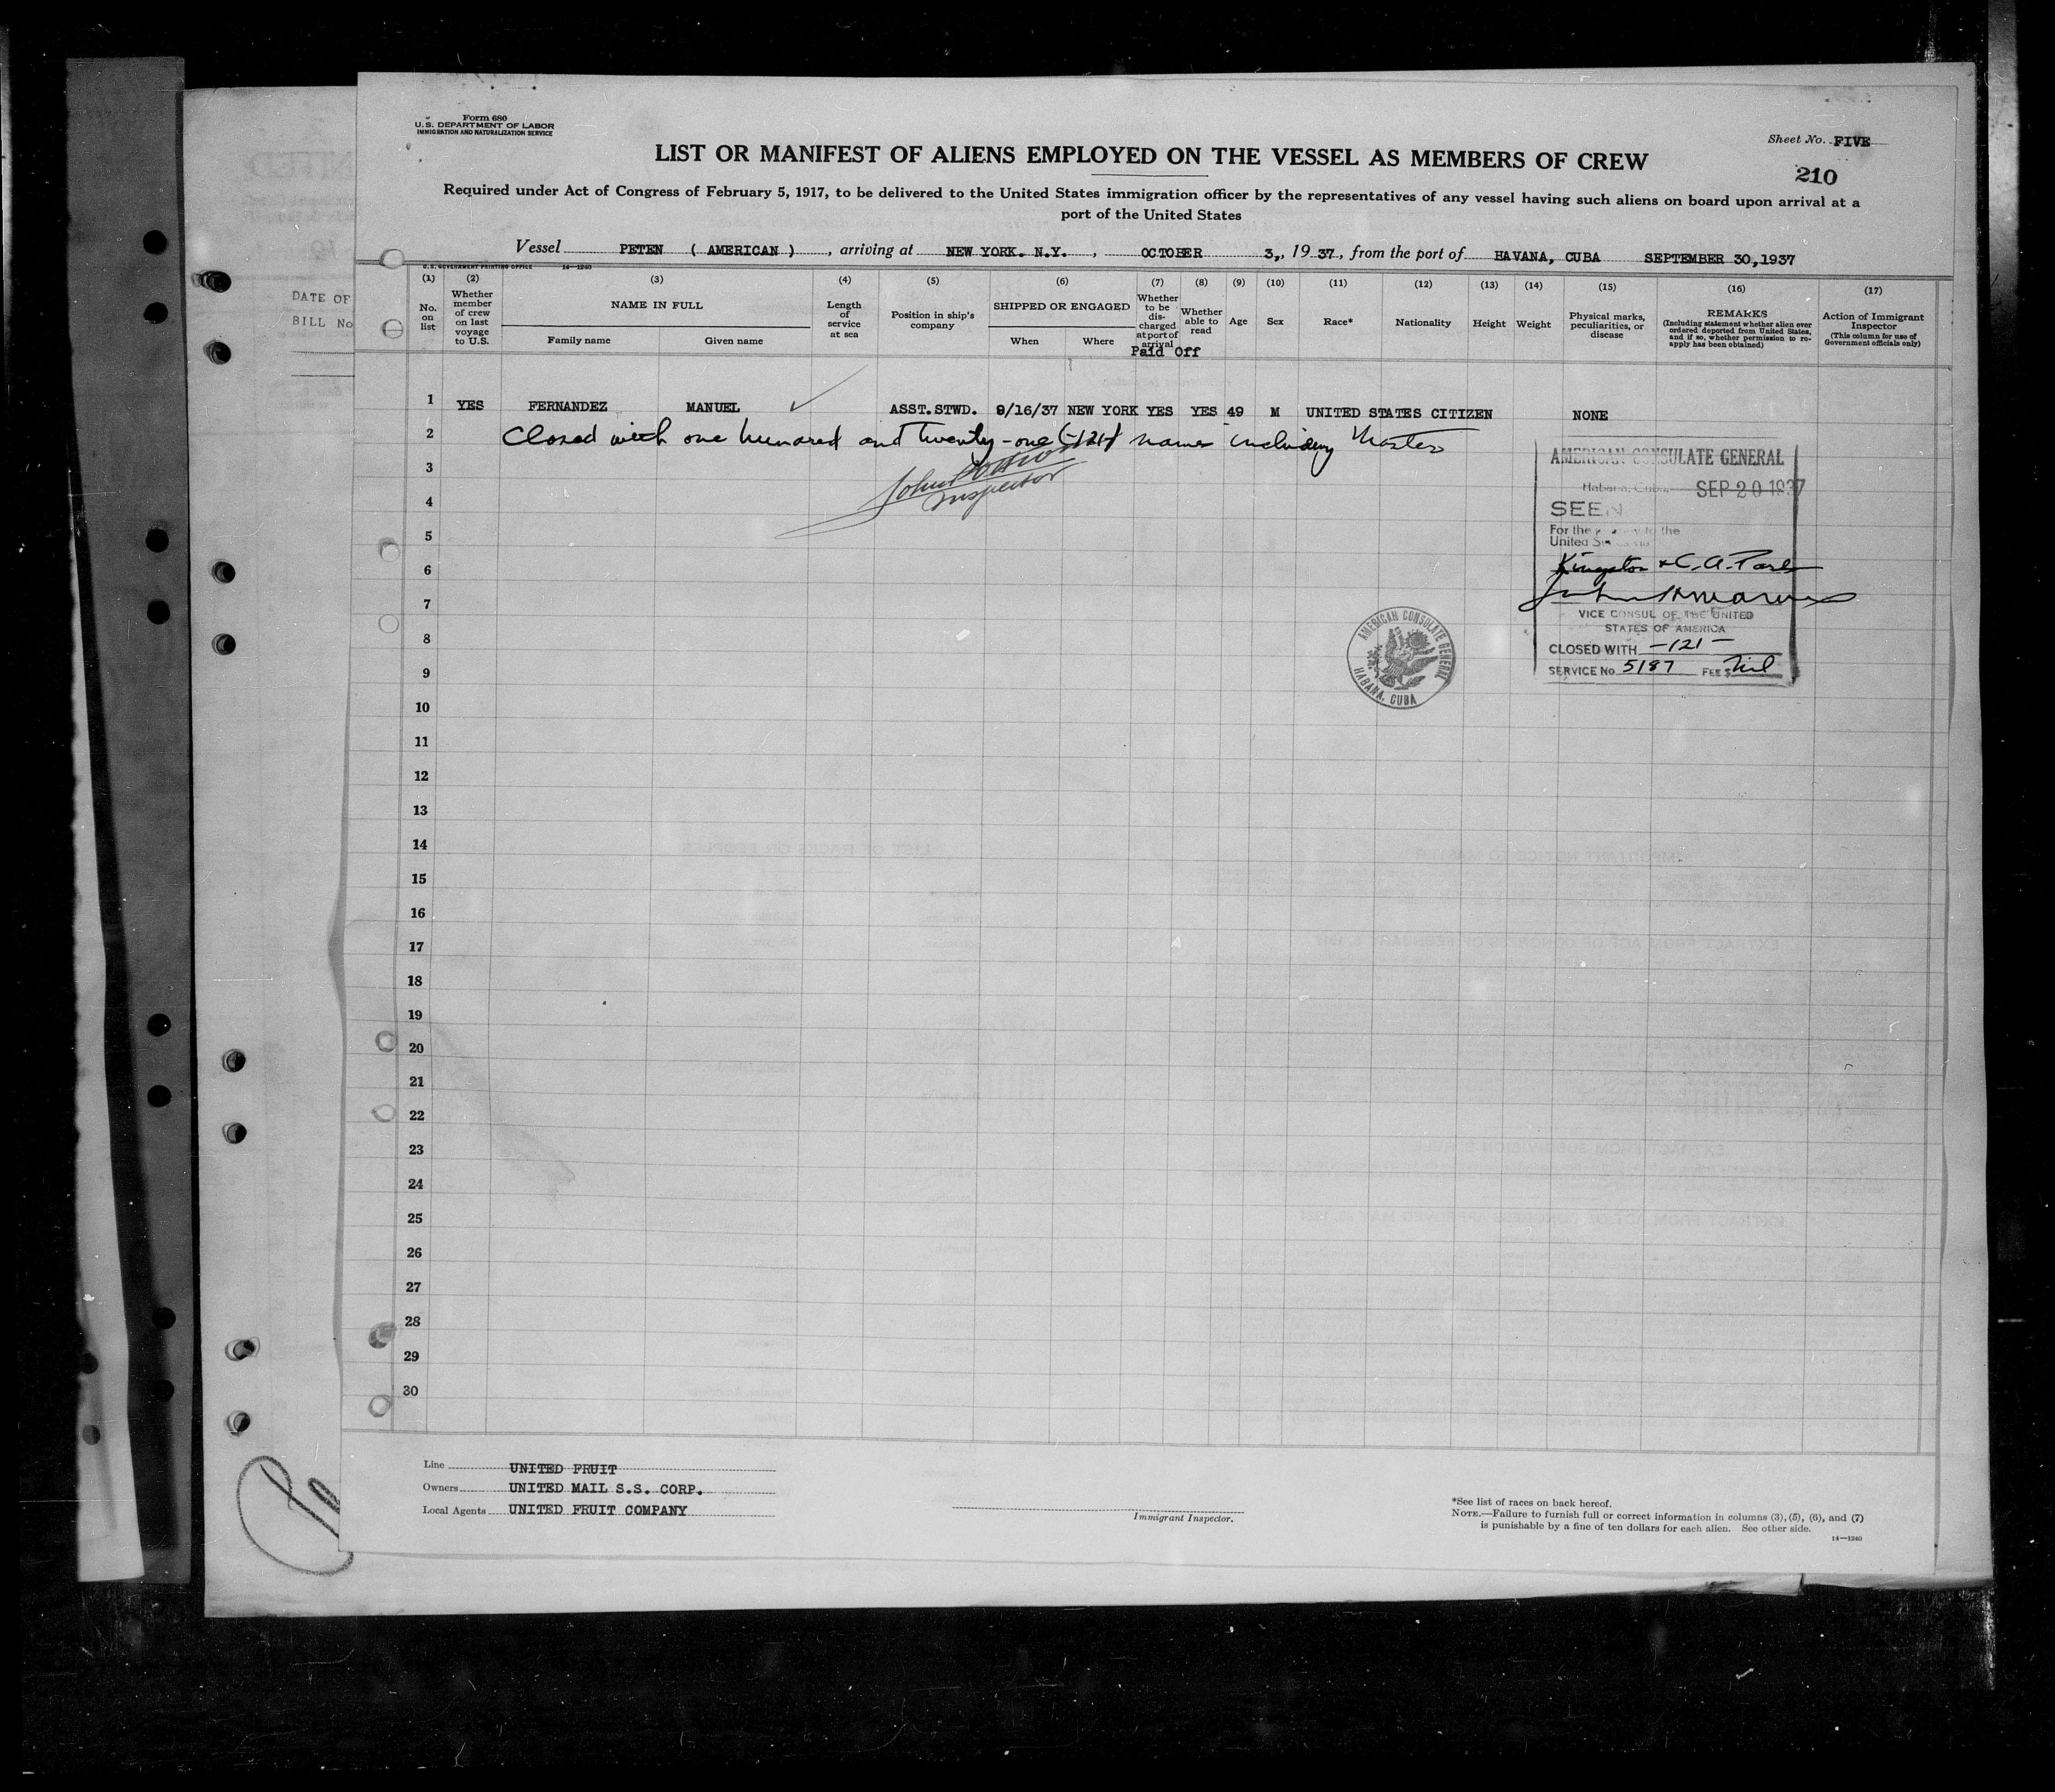 Form 680
U. S. DEPARTMENT OF LABOR
IMMIGRATION AND NATURALIZATION SERVICE
Sheet No. FIVE
210
LIST OR MANIFEST OF ALIENS EMPLOYED ON THE VESSEL AS MEMBERS OF CREW
Required under Act of Congress of February 5, 1917, to be delivered to the United States immigration officer by the representatives of any vessel having such aliens on board upon arrival at a
port of the United States
Vessel PETEN ( AMERICAN ) , arriving at NEW YORK. N.Y. , OCTOBER 3, , 1937, from the port of HAVANA, CUBA SEPTEMBER 30,1937
U. S. GOVERNMENT PRINTING OFFICE 14—1240
(1) No. on list
(2) Whether member of crew on last voyage to U.S.
(3) NAME IN FULL
Family name Given name
(4) Length of service at sea
(5) Position in ship's company
(6) SHIPPED OR ENGAGED
When Where
(7) Whether to be discharged at port of arrival
Paid Off
(8) Whether able to read
(9) Age
(10) Sex
(11) Race*
(12) Nationality
(13) Height
(14) Weight
(15) Physical marks, peculiarities, or disease
(16) REMARKS
(Including statement whether alien ever ordered deported from United States, and if so, whether permission to reapply has been obtained)
(17) Action of Immigrant Inspector
(This column for use of Government officials only)
1 YES FERNANDEZ MANUEL ✓ ASST.STWD. 9/16/37 NEW YORK YES YES 49 M UNITED STATES CITIZEN NONE
2 Closed with one hundred and twenty-one (-121-) names including Master
3
Inspector
4
5
6
7
8
9
10
11
12
13
14
15
16
17
18
19
20
21
22
23
24
25
26
27
28
29
30
AMERICAN CONSULATE GENERAL
Habana, Cuba. SEP 20 1937
SEEN
For the journey to the
United States via
Kingston & C. A. Ports
VICE CONSUL OF THE UNITED
STATES OF AMERICA
CLOSED WITH -121-
SERVICE No 5187 FEE $ Nil
AMERICAN CONSULATE GENERAL
HABANA, CUBA
DATE OF
BILL No
Line UNITED FRUIT
Owners UNITED MAIL S.S. CORP.
Local Agents UNITED FRUIT COMPANY
Immigrant Inspector.
*See list of races on back hereof.
NOTE.—Failure to furnish full or correct information in columns (3), (5), (6), and (7)
is punishable by a fine of ten dollars for each alien. See other side.
14—1240